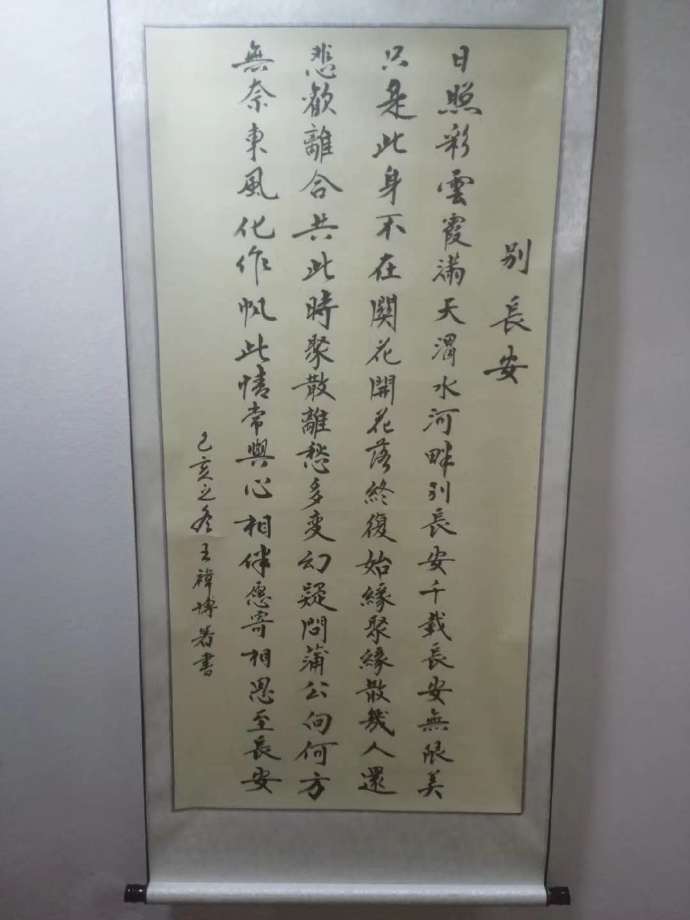 別長安
日照彩雲霞滿天渭水河畔別長安千載長安無限美
只是此身不在關花開花落終復始緣聚緣散幾人還
悲歡離合共此時聚散離愁多變幻疑問蒲公向何方
無奈東風化作帆此情常與心相伴愿寄相思至長安
己亥之冬王禕博著書